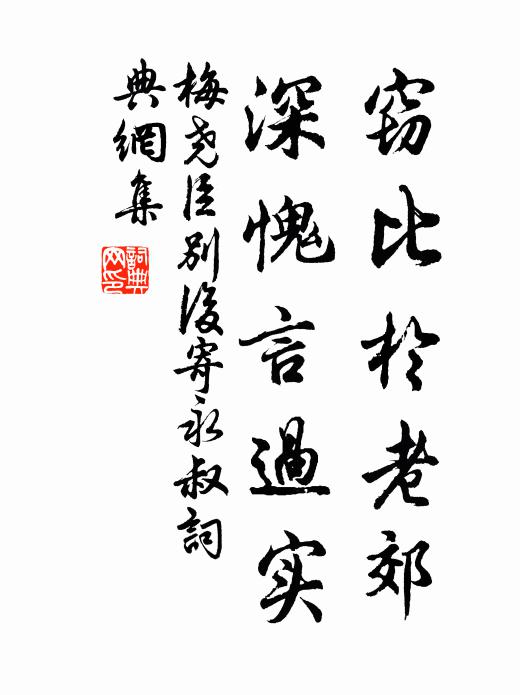 窃比於老郊
深愧言過实
梅尧臣別後寄永叔詞
典網集
詞典
网印